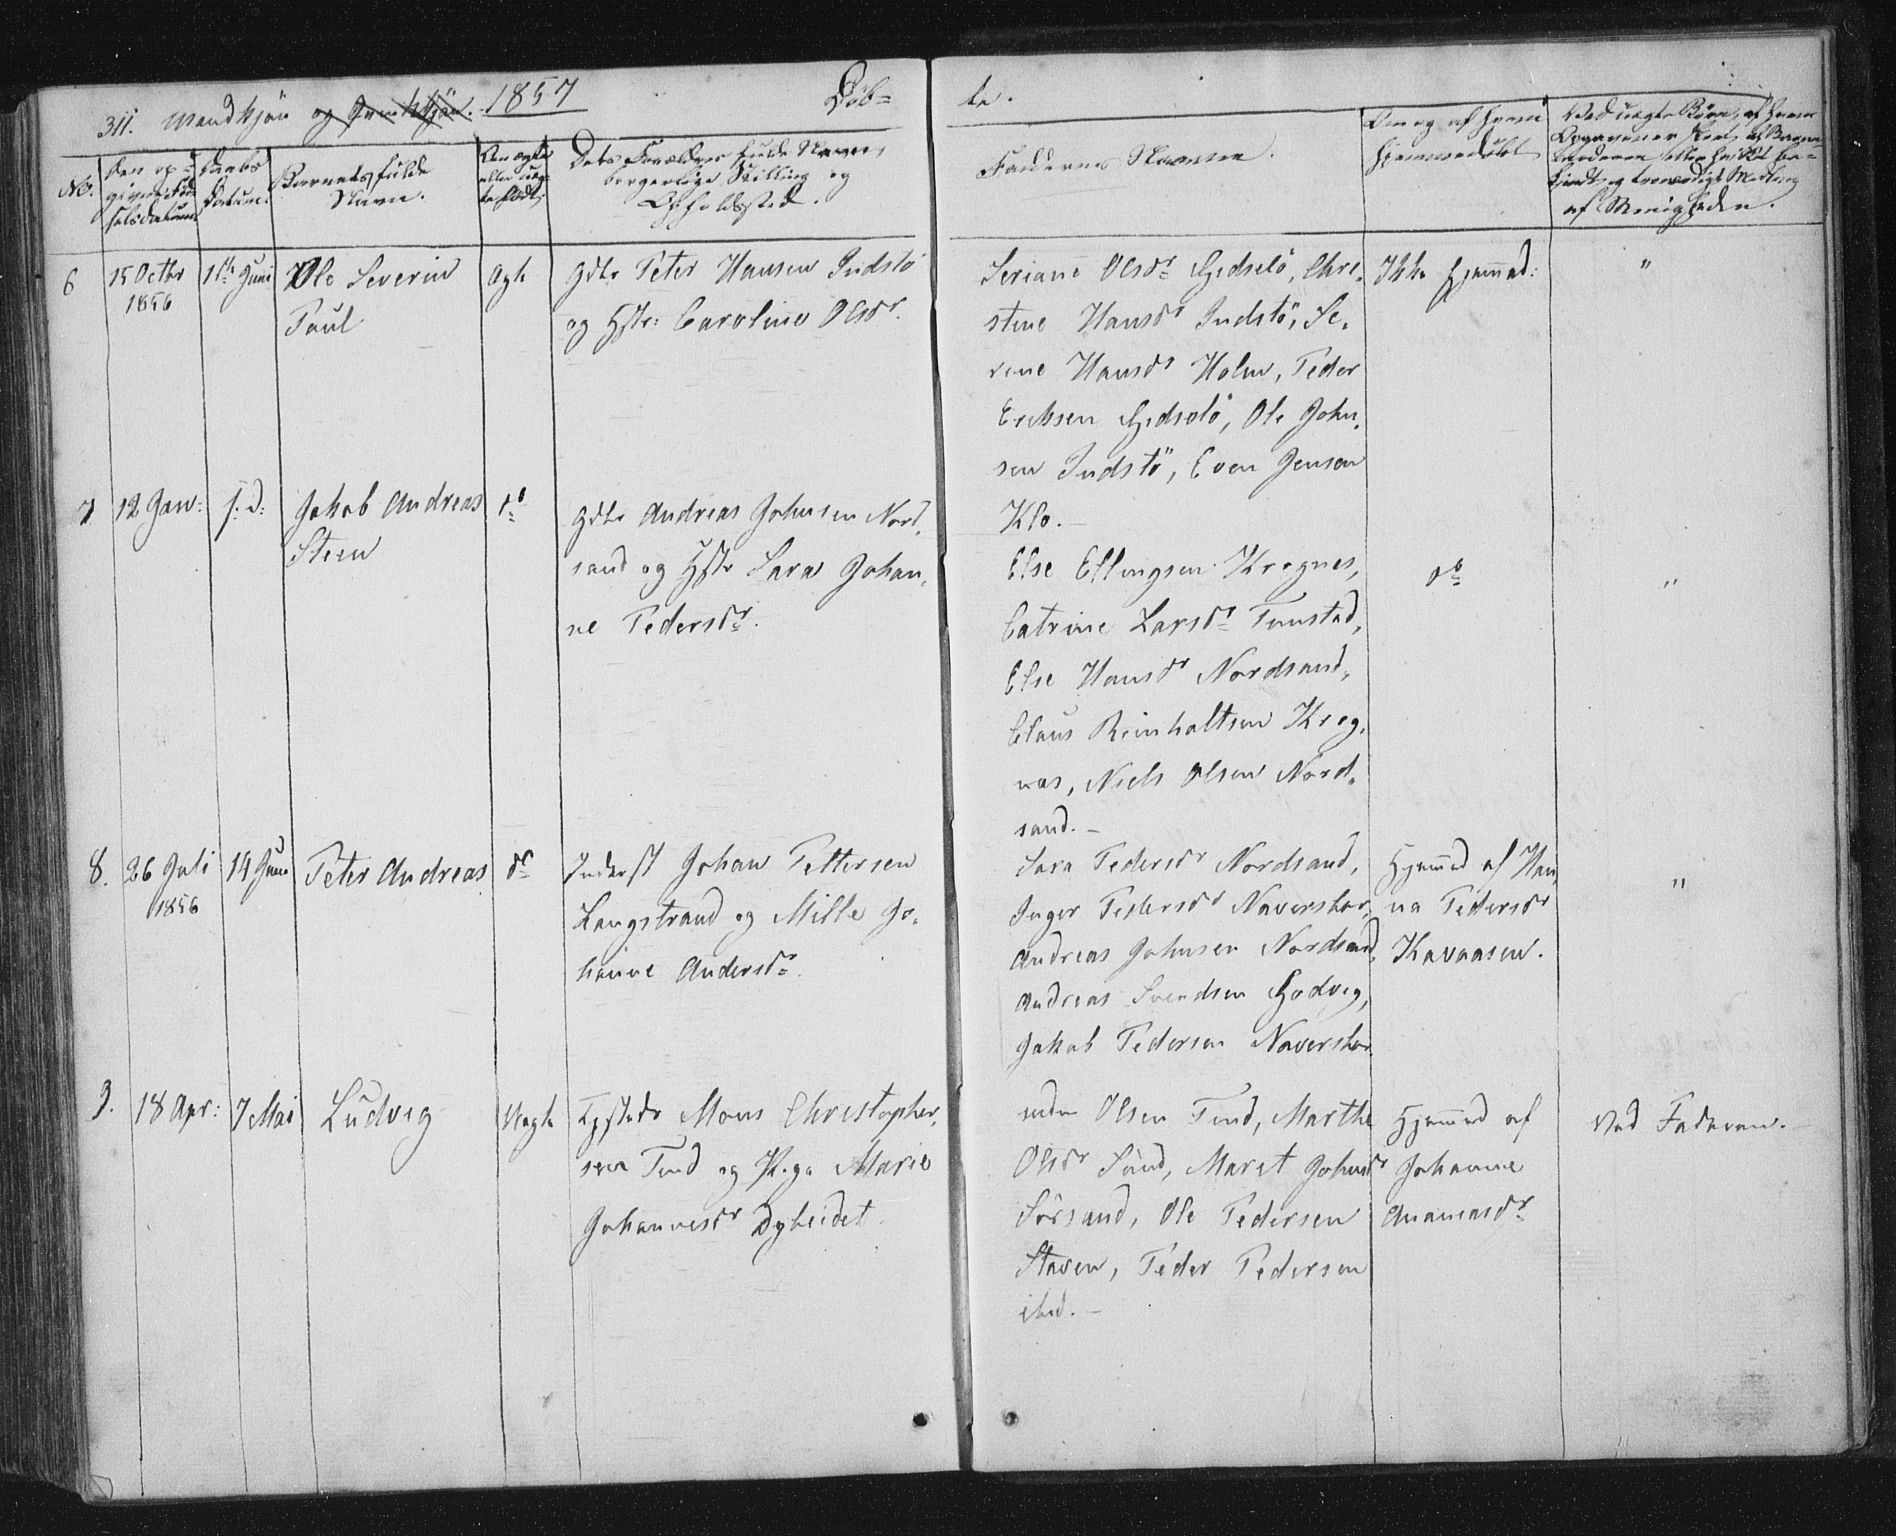 311. Mandkjön og Qvindekjön. 1857 Döb-
te.
No.
Den op-
givne Föd-
selsdatum
Daabs
Datum.
Barnets fulde
Navn.
Om ægte
eller uæg-
te födt.
Dets Forældres fulde Navne,
borgerlige Stilling og
Opholdssted.
Faddernes Navne.
Om og af hvem
hjemmedöbt
af Menigheden.
6
15 Octbr
1856
1ste Juni
Ole Severin
Paul
Ægte
Gdbr Peter Hansen Indstö
og Hstr: Caroline Olsdr.
Seriane Olsdr Gjedselö, Chri-
stine Hansdr Indstö, Se-
rene Hansdr Holm, Peder
Eriksen Gjedselö, Ole John-
sen Indstö, Even Jensen
Klo.-
Ikke hjemmed:
"
7
12 Jan:
s. D:
Jakob Andreas
Steen
do
Gdbr Andreas Johnsen Nord-
sand og Hstr Sara Johan-
ne Pedersdr.
Else Ellingsen Krognes,
Catrine Larsdr Tunstad,
Else Hansdr Nordsand,
Claus Reinholtsen Krog-
nas, Niels Olsen Nord-
sand.-
do
"
8.
26 Juli
1856
14 Juni
Peter Andreas
do
Inderst Johan Pettersen
Langstrand og Mille Jo-
hanne Andersdr.
Sara Pedersdr Nordsand,
Inger Pedersdr Naverskor,
Andreas Johnsen Nordsand,
Andreas Svendsen Hodvig,
Jakob Pedersen Naverskor
Hjemmed af Han-
na Pedersdr
Kavaasen.
"
9.
18 Apr:
7 Mai
Ludvig
Uægte
Mons Christopher-
sen Tind og Pige Marie
Johannesdr Dybeidet.
Olsen Tind, Marthe
Olsdr Sund, Maret Johnsdr
Sörsand, Ole Pedersen
Staven, Peder Pedersen
ibid.-
Hjemmed af
Johanne
Ananiasdr
Ved Faderen.-